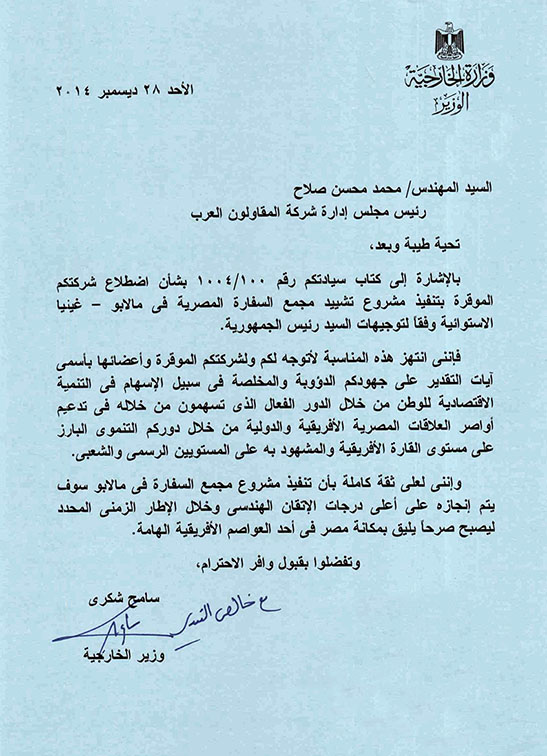 وزارة الخارجية
الوزير
الأحد ٢٨ ديسمبر ٢٠١٤
السيد المهندس/ محمد محسن صلاح
رئيس مجلس إدارة شركة المقاولون العرب
تحية طيبة وبعد،
بالإشارة إلى كتاب سيادتكم رقم ١٠٠٤/١٠٠ بشأن اضطلاع شركتكم
الموقرة بتنفيذ مشروع تشييد مجمع السفارة المصرية فى مالابو – غينيا
الاستوائية وفقاً لتوجيهات السيد رئيس الجمهورية.
فإننى انتهز هذه المناسبة لأتوجه لكم ولشركتكم الموقرة وأعضائها بأسمى
آيات التقدير على جهودكم الدؤوبة والمخلصة فى سبيل الإسهام فى التنمية
الاقتصادية للوطن من خلال الدور الفعال الذى تسهمون من خلاله فى تدعيم
أواصر العلاقات المصرية الأفريقية والدولية من خلال دوركم التنموى البارز
على مستوى القارة الأفريقية والمشهود به على المستويين الرسمى والشعبى.
وإننى لعلى ثقة كاملة بأن تنفيذ مشروع مجمع السفارة فى مالابو سوف
يتم إنجازه على أعلى درجات الإتقان الهندسى وخلال الإطار الزمنى المحدد
ليصبح صرحاً يليق بمكانة مصر فى أحد العواصم الأفريقية الهامة.
وتفضلوا بقبول وافر الاحترام،
سامح شكرى
مع خالص التقدير
وزير الخارجية